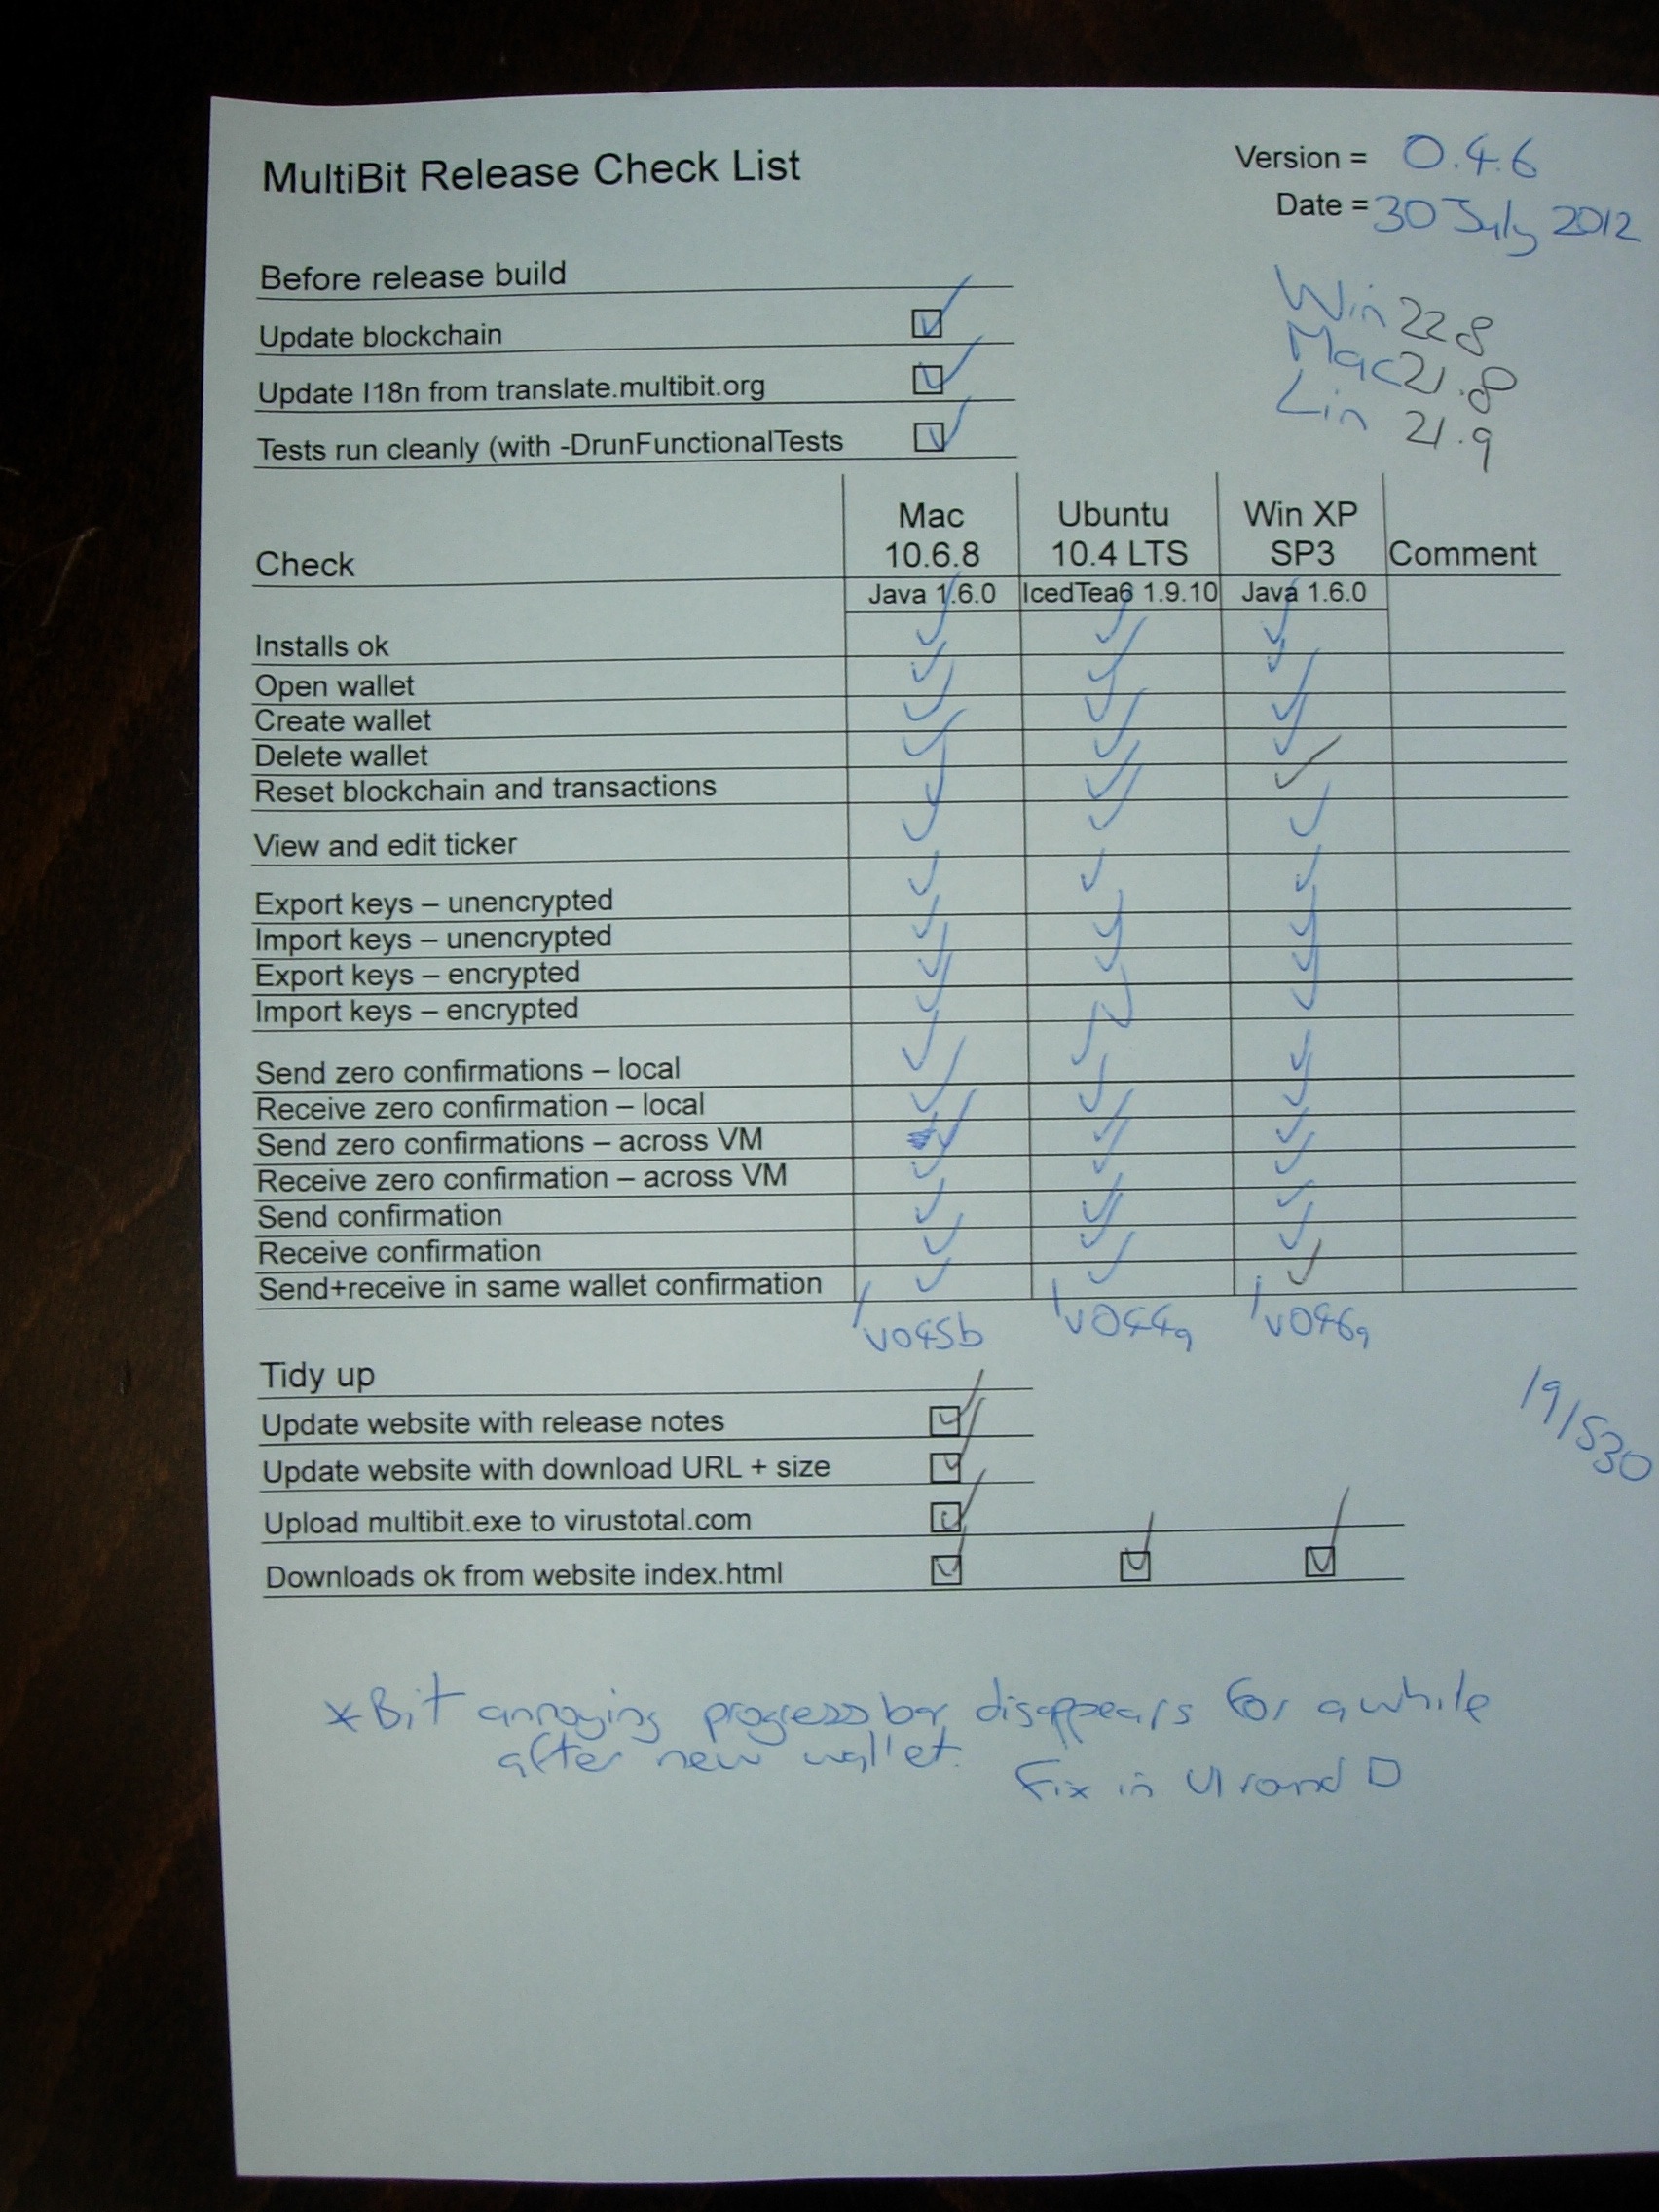 MultiBit Release Check List
Version = 0.4.6
Date = 30 July 2012
Before release build
Update blockchain
Update I18n from translate.multibit.org
Tests run cleanly (with -DrunFunctionalTests
Win 22.8
Mac 21.8
Lin 21.9
Check Mac 10.6.8 Ubuntu 10.4 LTS Win XP SP3 Comment
Java 1.6.0 IcedTea6 1.9.10 Java 1.6.0
Installs ok
Open wallet
Create wallet
Delete wallet
Reset blockchain and transactions
View and edit ticker
Export keys – unencrypted
Import keys – unencrypted
Export keys – encrypted
Import keys – encrypted
Send zero confirmations – local
Receive zero confirmation – local
Send zero confirmations – across VM
Receive zero confirmation – across VM
Send confirmation
Receive confirmation
Send+receive in same wallet confirmation
v045b v044a v046a
Tidy up
Update website with release notes
Update website with download URL + size
Upload multibit.exe to virustotal.com
Downloads ok from website index.html
19/530
*Bit annoying progress bar disappears for a while
after new wallet.
Fix in